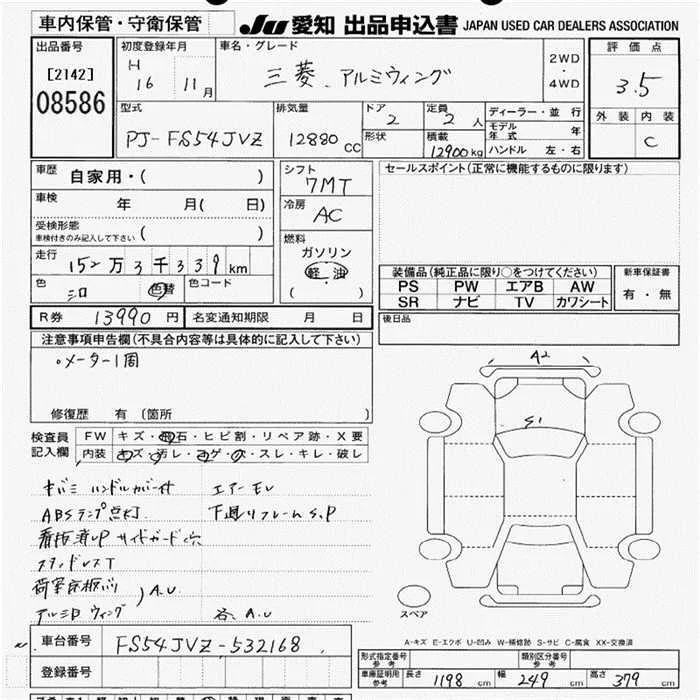 車内保管・守衛保管
JU 愛知 出品申込書 JAPAN USED CAR DEALERS ASSOCIATION
出品番号
[2142]
08586
初度登録年月
H
16 11月
車名・グレード
三菱. アルミウィング
2WD
・
4WD
評価点
3.5
外装 内装
C
型式
PJ-FS54JVZ
排気量
12880 CC
ドア
2
形状
定員
2人
積載
12900kg
ディーラー・並行
モデル年式 年
ハンドル 左・右
車歴
自家用・( )
車検 年 月( 日)
受検形態
車検付きのみ記入して下さい ( )
走行
152万3千339km
色 色替
色コード
シフト
7MT
冷房
AC
燃料
ガソリン
軽・油
( )
セールスポイント(正常に機能するものに限ります)
装備品(純正品に限り○をつけてください)
PS PW エアB AW
SR ナビ TV カワシート
新車保証書
有・無
R券 13990円
名変通知期限 月 日
後日品
注意事項申告欄(不具合内容等は具体的に記入して下さい)
・メーター1周
修復歴 有 (箇所 )
検査員
記入欄
FW キズ・飛石・ヒビ割・リペア跡・X要
内装 キズ・汚レ・コゲ・穴・スレ・キレ・破レ
キバミ ハンドルカバー付 エアーモレ
ABSランプ点灯 下廻りフレームS.P
看板消しP サイドガード穴
スタンドレスT
A.U
アルミ日ウィング A.U
車台番号 FS54JVZ-532168
登録番号
A2
S1
スペア
A-キズ E-エクボ U-凹み W-補修跡 S-サビ C-腐食 XX-交換済
形式指定番号
参考
類別区分番号
参考
車庫証明用
参考
長さ 1198cm 幅 249cm 高さ 379cm